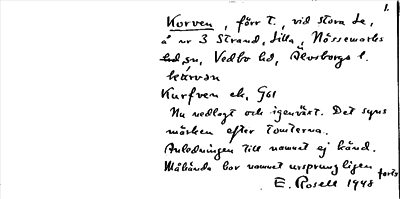 1.
Korven, förr t., vid Stora Le,
å nr 3 Strand, Lilla, Nössemarks
sn, Vedbo hd, Älvsborgs l.
kårvən
Kurfven ek. G61
Nu nedlagt och igenväxt. Det syns
märken efter tomterna.
Anledningen till namnet ej känd.
Måhända bor namnet ursprungligen
forts
E. Rosell 1948